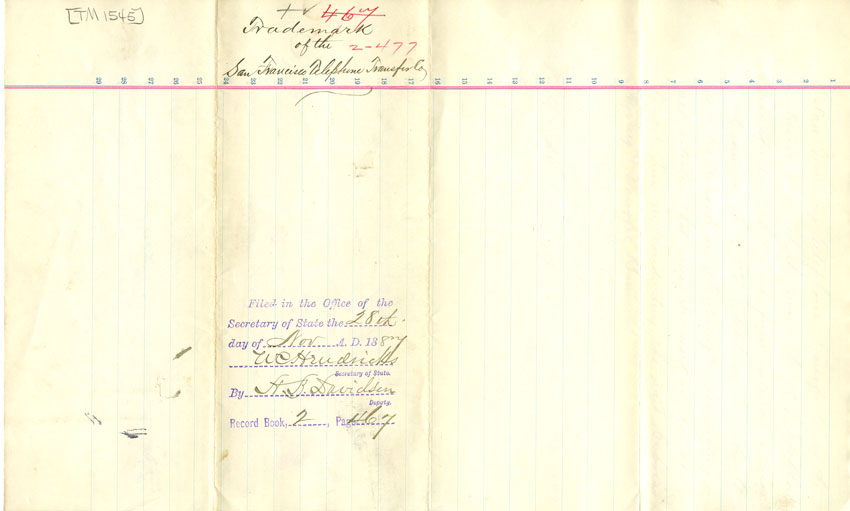 [TM 1545]
+ ✓ 467
Trademark
of the 2-477
San Francisco Telephone Transfer Co
29 28 27 26 25 24 23 22 21 20 19 18 17 16 15 14 13 12 11 10 9 8 7 6 5 4 3 2 1
Filed in the Office of the
Secretary of State the 28th
day of Nov A. D. 1887
W C Hendricks
Secretary of State.
By H. F. Davidson
Deputy.
Record Book, 2, Page 467